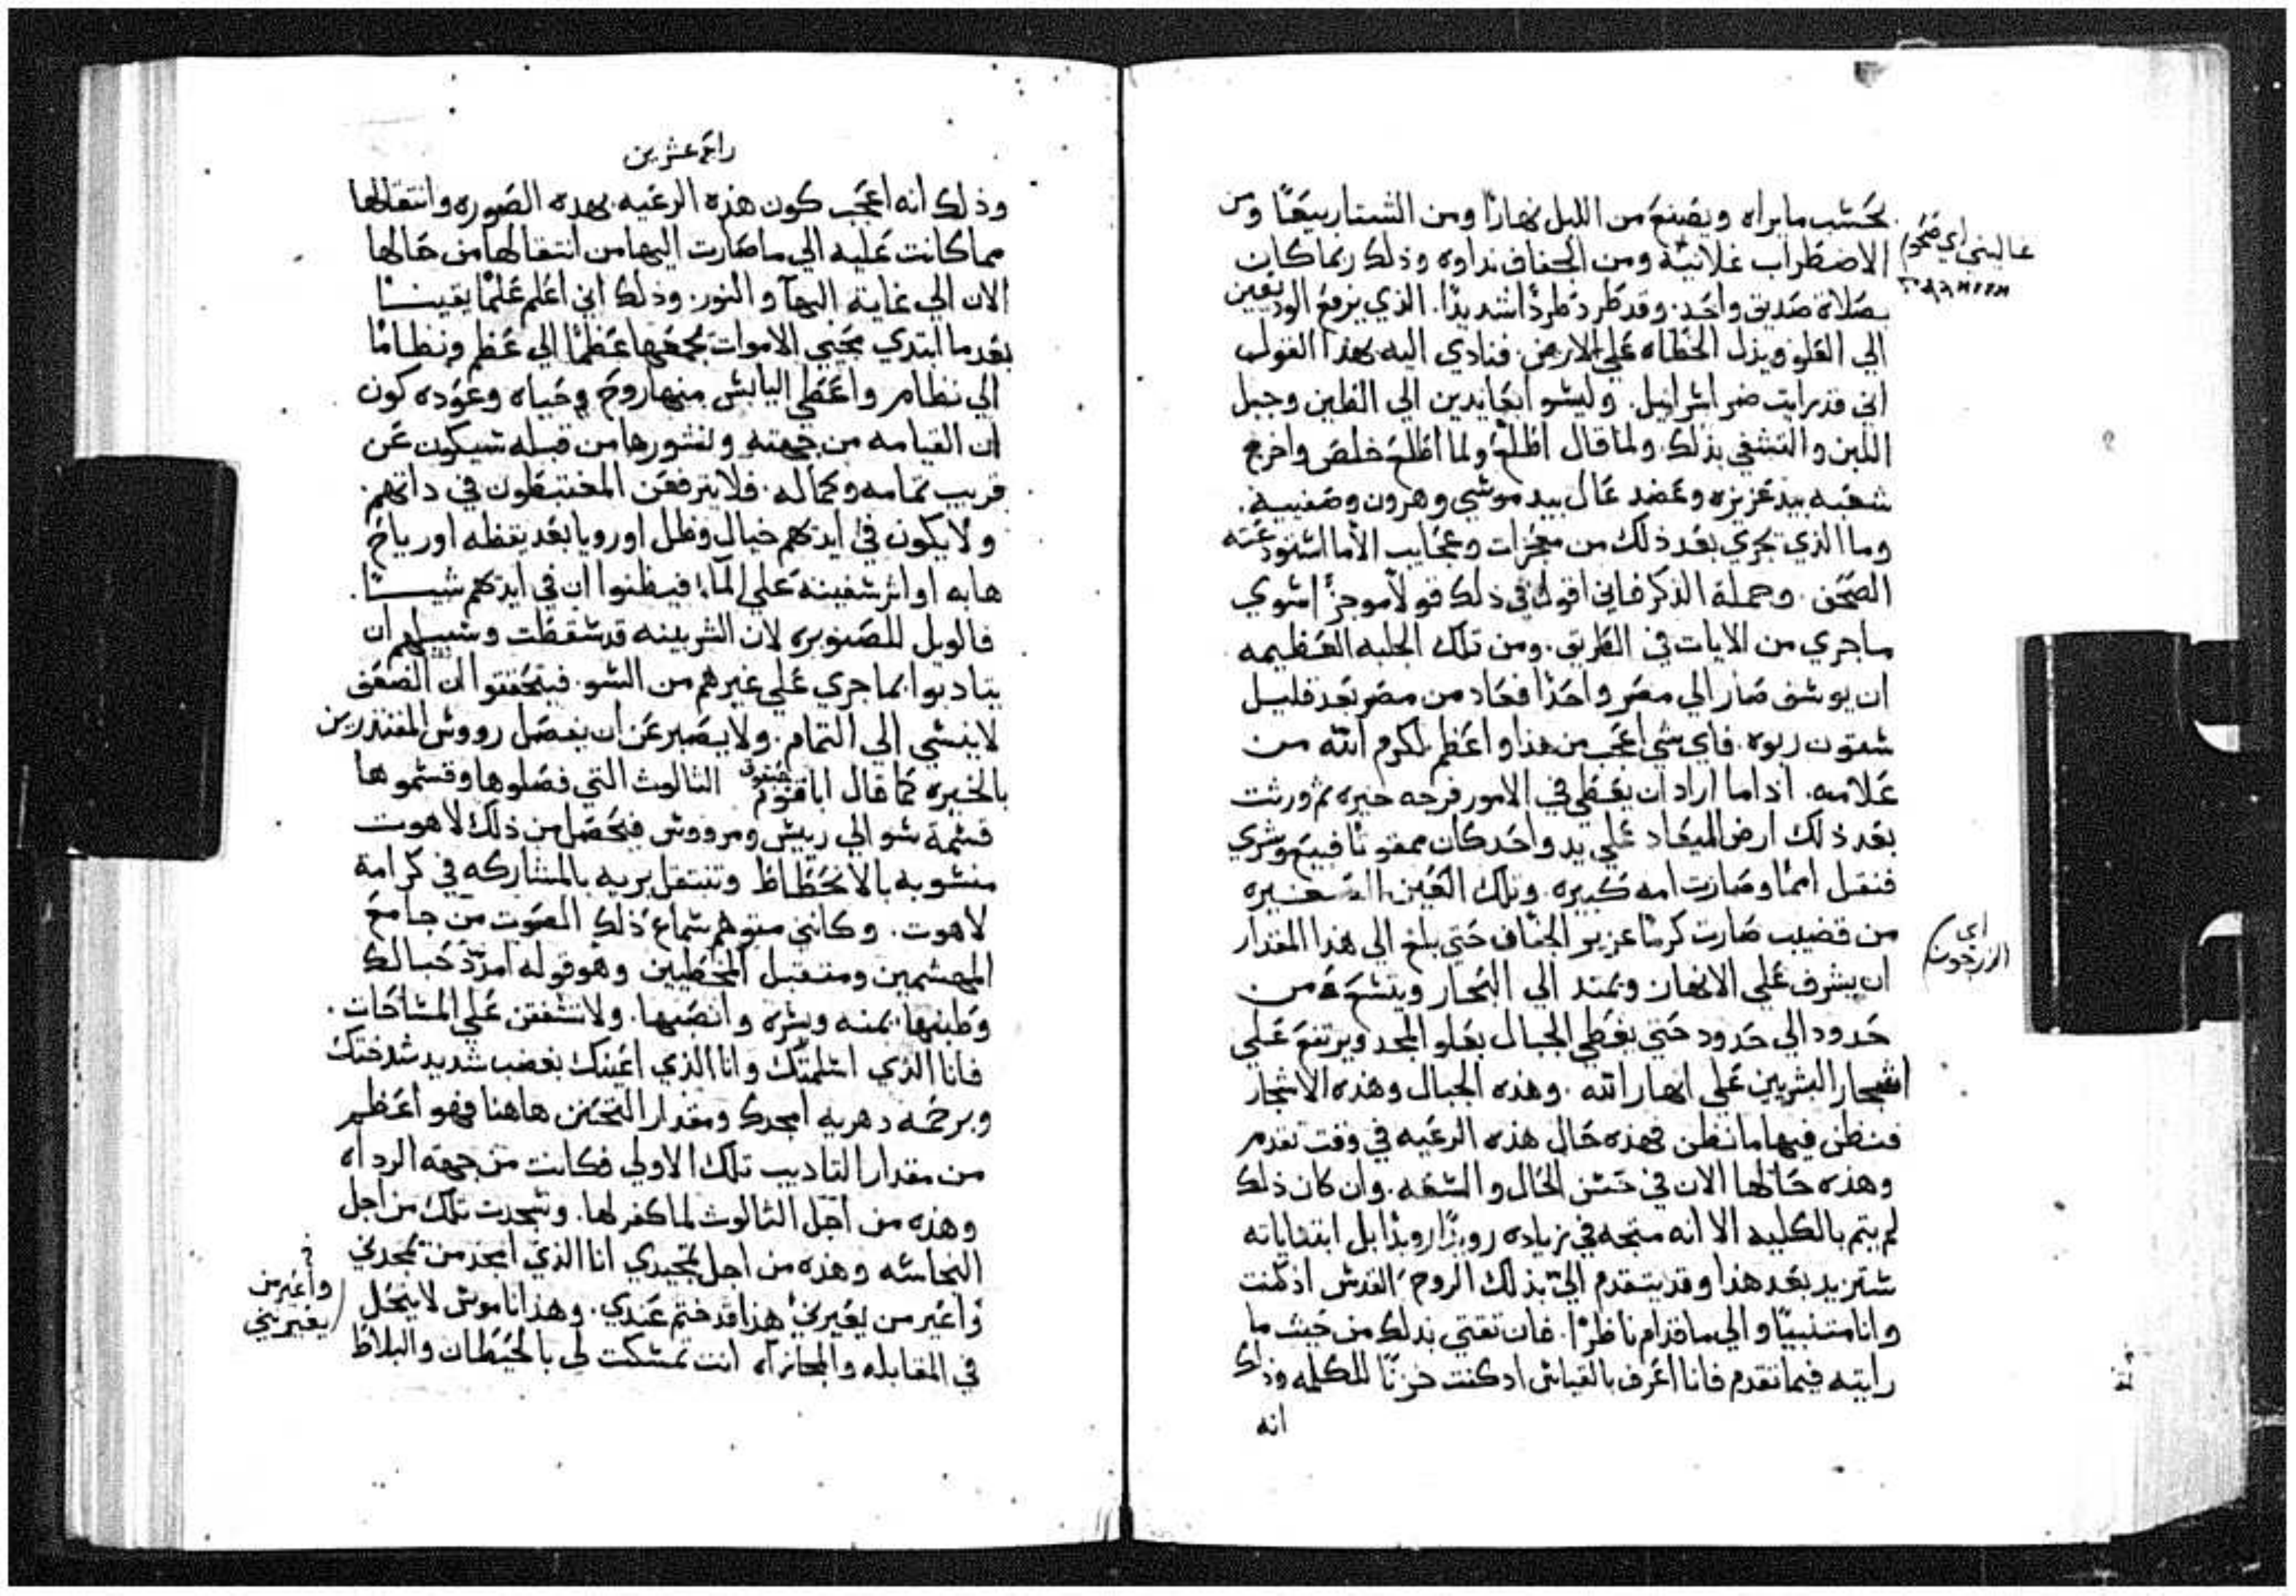 بحسب ما يراه ويصنع من الليل نهارًا ومن الشتا ربيعًا ومن
الاضطراب غلانية ومن الجفاف نداوه وذلك ربما كان
بصلاة صديق واحد. وقد طرد طردًا شديدًا. الذي يرفع الوديعين
الي العلو ويذل الخطاه علي الارض. فنادي اليه بهذا القول
اني قد رايت ضر اسراييل. وليسوا بجايدين الي الطين وجبل
اللبن والتشفي بذلك. ولما قال اطلع ولما اطلع خلص واخرج
شعبه بيد عزيزه وعضد عال بيد موسي وهرون وصفييه.
وما الذي يجري بعد ذلك من معجزات وعجايب الا ما استودعته
الصحف. وجملة الذكر فاني اقول في ذلك قولًا موجزًا سوي
ما جري من الايات في الطريق. ومن تلك الجلبه العظيمه
ان يوسف صار الي مصر واحدًا فعاد من مصر بعد قليل
ستون ربوه. فاي شي اعجب من هذا واعظم لكرم الله من
علامه. اذا ما اراد ان يعطي في الامور فرجه حيره ثم ورثت
بعد ذلك ارض الميعاد علي يد واحد كان ممقوتًا فبيع وشري
فنقل اممًا وصارت امه كبيره. وتلك الغبن الصغيره
من قضيب صارت كرمًا عزيز الجفاف حتي بلغ الي هذا المقدار
ان يشرف علي الانهار ويمتد الي البحار ويتسع من
حدود الي حدود حتي يغطي الجبال بعلو المجد ويرتفع علي
اشجار الشربين علي انهار الله. وهذه الجبال وهذه الاشجار
فنظن فيها ما نظن فهذه حال هذه الرعيه في وقت تقدم
وهذه حالها الان في حسن الحال والسعه. وان كان ذلك
لم يتم بالكليه الا انه متجه في زياده رويدًا رويدًا بل ابتداياته
ستزيد بعد هذا وقد يتقدم الي بذلك الروح القدس اذ كنت
وانا متنبيًا والي ما قدام ناظرًا. فان تقتي بذلك من حيث ما
رايته فيما تقدم فانا اعرف بالقياس اذ كنت حزنًا للكلمه وذلك
انه
اي
الزرجون
وذلك انه اعجب كون هذه الرعيه بهذه الصوره وانتقالها
مما كانت عليه الي ما صارت اليها من انتقالها من حالها
الان الي غاية البهآ والنور. وذلك اني اعلم علمًا يقينًا
بعد ما ابتدي محيي الاموات بجمعها عظمًا الي عظم ونظامًا
الي نظام واعطي اليابس منها روح وحياه وعوده كون
ان القيامه من جهته ونشورها من قبله سيكون عن
قريب تمامه وكماله. فلا يترفعن المغتبطون في ذاتهم.
ولا يكون في ايديهم خيال وظل اورويا بعد يقظه او رياح
هابه او اثر سفينه علي المآ، فيظنوا ان في ايديهم شيـًا.
فالويل للصنوبره لان الشربينه قد سقطت وسبيلهم ان
يتادبوا بما جري علي غيرهم من السو. فيتحققوا ان الضعف
لا ينسي الي التمام. ولا يصبر عن ان يفصل رووس المقتدرين
بالحيره كما قال اباقنوم الثالوث التي فصلوها وقسموها
قسمة سو الي رييس ومرووس فيحصل من ذلك لاهوت
منسوبه بالانحطاط وتنتقل بريه بالمشاركه في كرامة
لاهوت. وكانني متوهم سماع ذلك الصوت من جامع
المهشمين ومتقبل المخطيين وهو قوله امدد حبالك
وطنبها. يمنه ويسره وانصبها. ولا تشفقن علي المساحات.
فانا الذي اسلمتك وانا الذي اعينك بغضب شديد شدختك
وبرحمه دهريه امجدك ومقدار التحنن هاهنا فهو اعظم
من مقدار التاديب تلك الاولي فكانت من جهة الرداه
وهذه من اجل الثالوث لما كفر لها. وسجدت تلك من اجل
النجاسه وهذه من اجل تمجيدي انا الذي امجد من يمجدني
واغير من يغيرني هذا قد ختم عندي. وهذا ناموس لا ينحل
في المقابله والمجازاه انت تمسكت لي بالحيطان والبلاط
واغير من
يغيرني